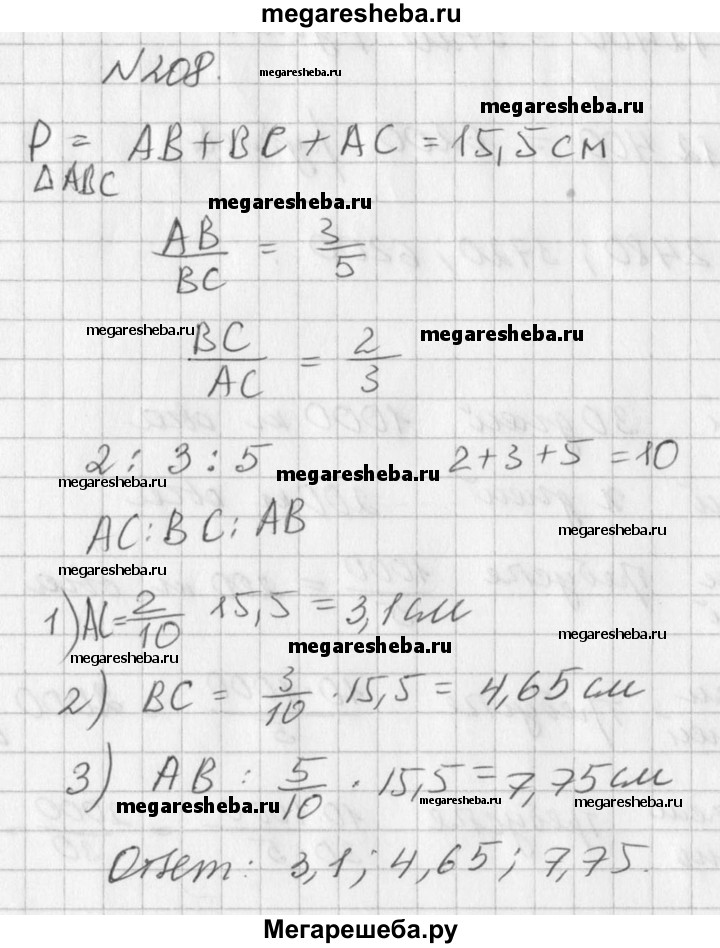 megaresheba.ru
N208. megaresheba.ru
megaresheba.ru
P = AB+BC+AC = 15,5 см
△ABC
megaresheba.ru
AB/BC = 3/5
megaresheba.ru megaresheba.ru
BC/AC = 2/3
2 : 3 : 5 2+3+5=10
megaresheba.ru megaresheba.ru
AC:BC:AB megaresheba.ru
megaresheba.ru
1) AC=2/10 15,5 = 3,1 см
megaresheba.ru megaresheba.ru megaresheba.ru
2) BC = 3/10 · 15,5 = 4,65 см
3) AB : 5/10 · 15,5 = 7,75 см
megaresheba.ru megaresheba.ru megaresheba.ru
Ответ: 3,1; 4,65; 7,75.
Мегарешеба.ру